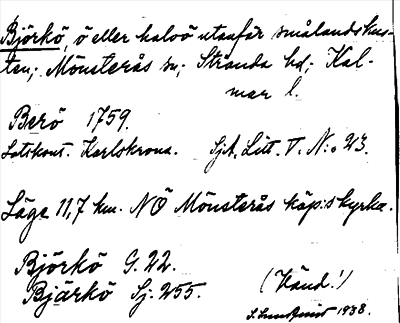 Björkö, ö eller halvö utanför smålandskus-
ten; Mönsterås sn; Stranda hd; Kal-
mar l.
Berö 1759.
Lotskont. Karlskrona. SjA, Litt. V. N:o 23.
Läge 11,7 km. NÖ Mönsterås köp:s kyrka.
Björkö G. 22.
Bjärkö Sj: 255. (Vänd!)
1938.